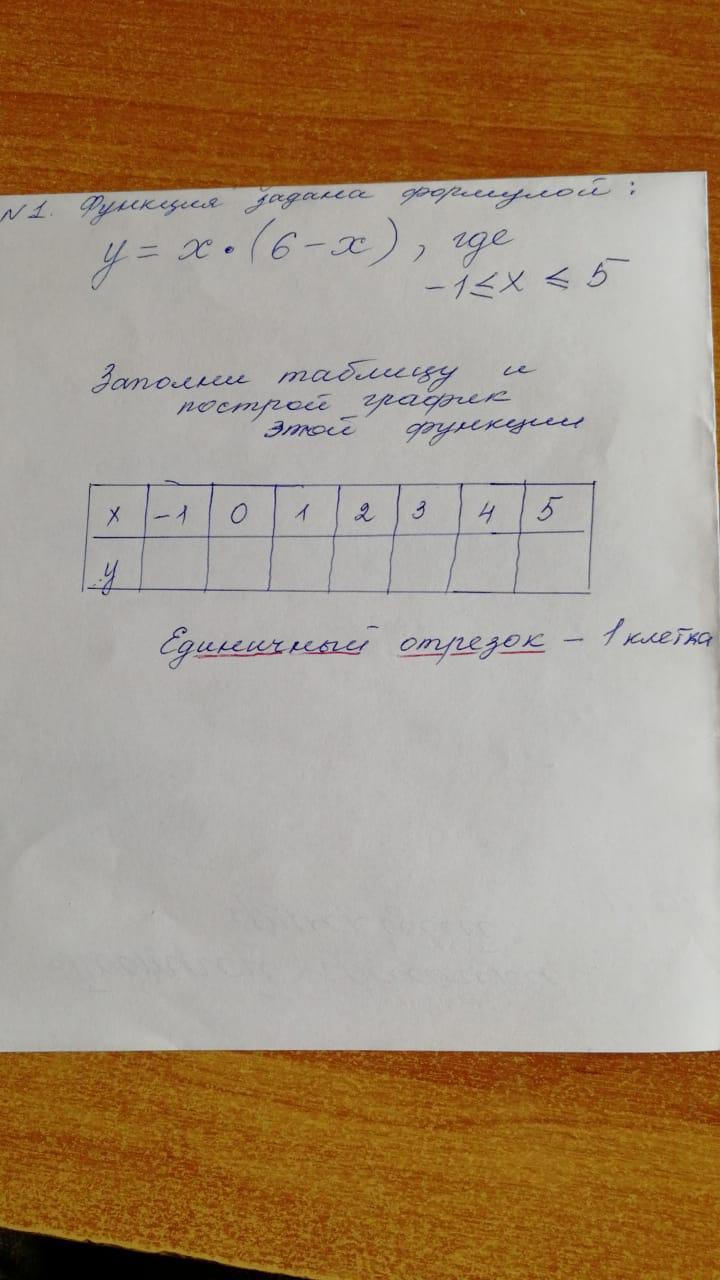 №1. Функция задана формулой:
y = x • (6 – x), где
–1 ≤ x ≤ 5
Заполни таблицу и
построй график
этой функции
x –1 0 1 2 3 4 5
y
Единичный отрезок – 1 клетка